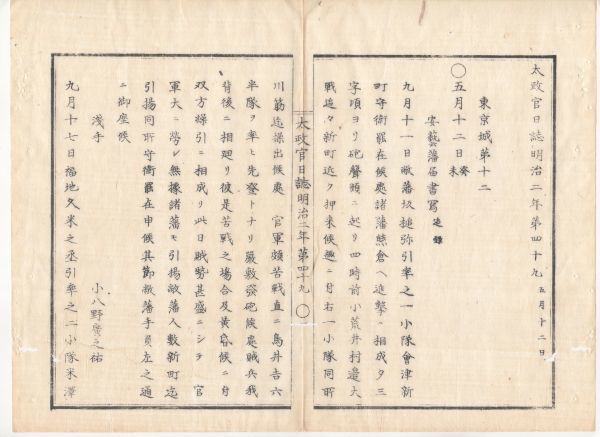 太政官日誌明治二年第四十九 五月十二日
東京城第十二
○五月十二日 癸未
安藝藩届書寫 追録
九月十一日敝藩坂槌弥引率之一小隊會津新
町守衛罷在候處諸藩熊倉ヘ進撃ニ相成夕三
字頃ヨリ砲聲頻ニ起リ四時前小荒井村邉大
戰追々新町近ク押来候趣ニ付右一小隊同所
川筋迄操出候處 官軍頗苦戰直ニ鳥井吉六
半隊ヲ率ヒ先登トナリ嚴敷發砲候處賊兵我
背後ニ相廻リ彼是苦戰之場合及黄昏候ニ付
双方繰引ニ相成リ此日賊勢甚盛ニシテ 官
軍大ニ勞レ無據諸藩モ引揚敝藩人數新町迄
引揚同所守衛罷在申候其節敝藩手負左之通
ニ御座候
浅手
小八野廣之祐
九月十七日福地久米之丞引率之二小隊米澤
太政官日誌明治二年第四十九 ○